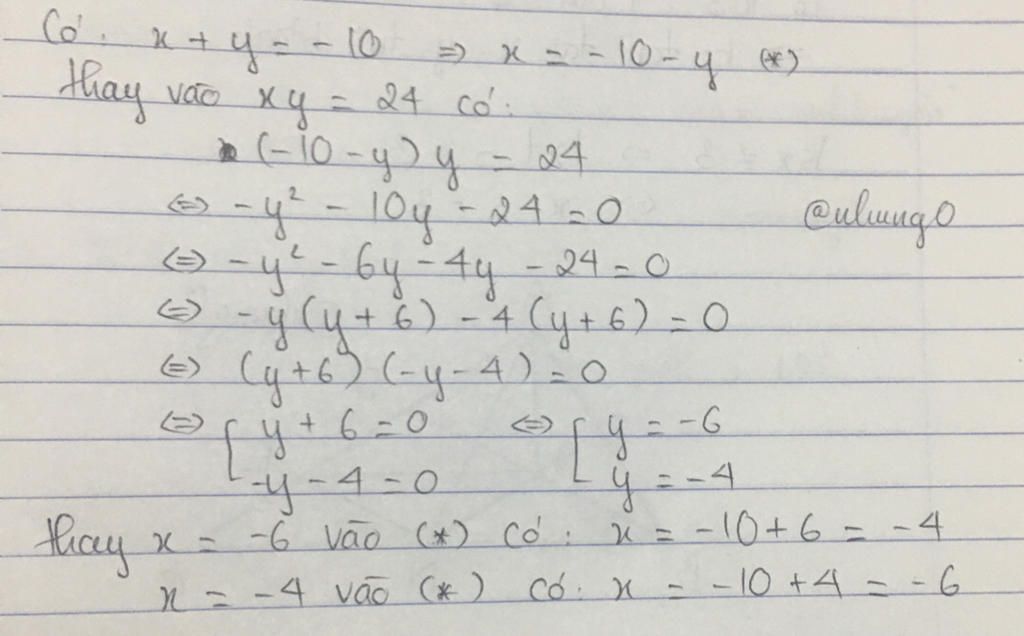 Có: x + y = -10 => x = -10 - y (*)
thay vào xy = 24 có:
(-10 - y) y = 24
<=> -y² - 10y - 24 = 0
@uhuung0
<=> -y² - 6y - 4y - 24 = 0
<=> -y (y + 6) - 4 (y + 6) = 0
<=> (y + 6) (-y - 4) = 0
<=> [ y + 6 = 0 <=> [ y = -6
-y - 4 = 0 y = -4
thay x = -6 vào (*) có: x = -10 + 6 = -4
x = -4 vào (*) có: x = -10 + 4 = -6